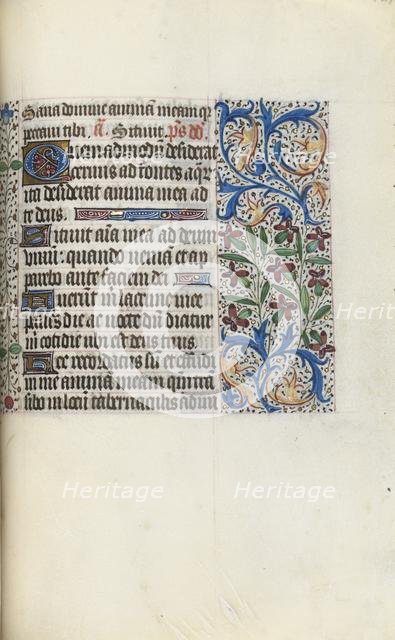 Sana domine animā meam qr
peccaui tibi. A. Sitiuit. ps dd.
Quemadmodū desiderat
ceruus ad fontes aqr
ita desiderat anima mea ad
te deus.
Sitiuit aīa mea ad deum
viuū: quando ueniā et ap
parebo ante faciem dei
Fuerūt michi lacrime mee
panes die ac nocte dū dicitur
m̄ cotidie ubi est deus tuus.
Hec recordatus sū et effudi
in me animā meam quī tra
sibo in locū tabernaculi
Heritage
Heritage
Heritage
Heritage
Heritage
Heritage